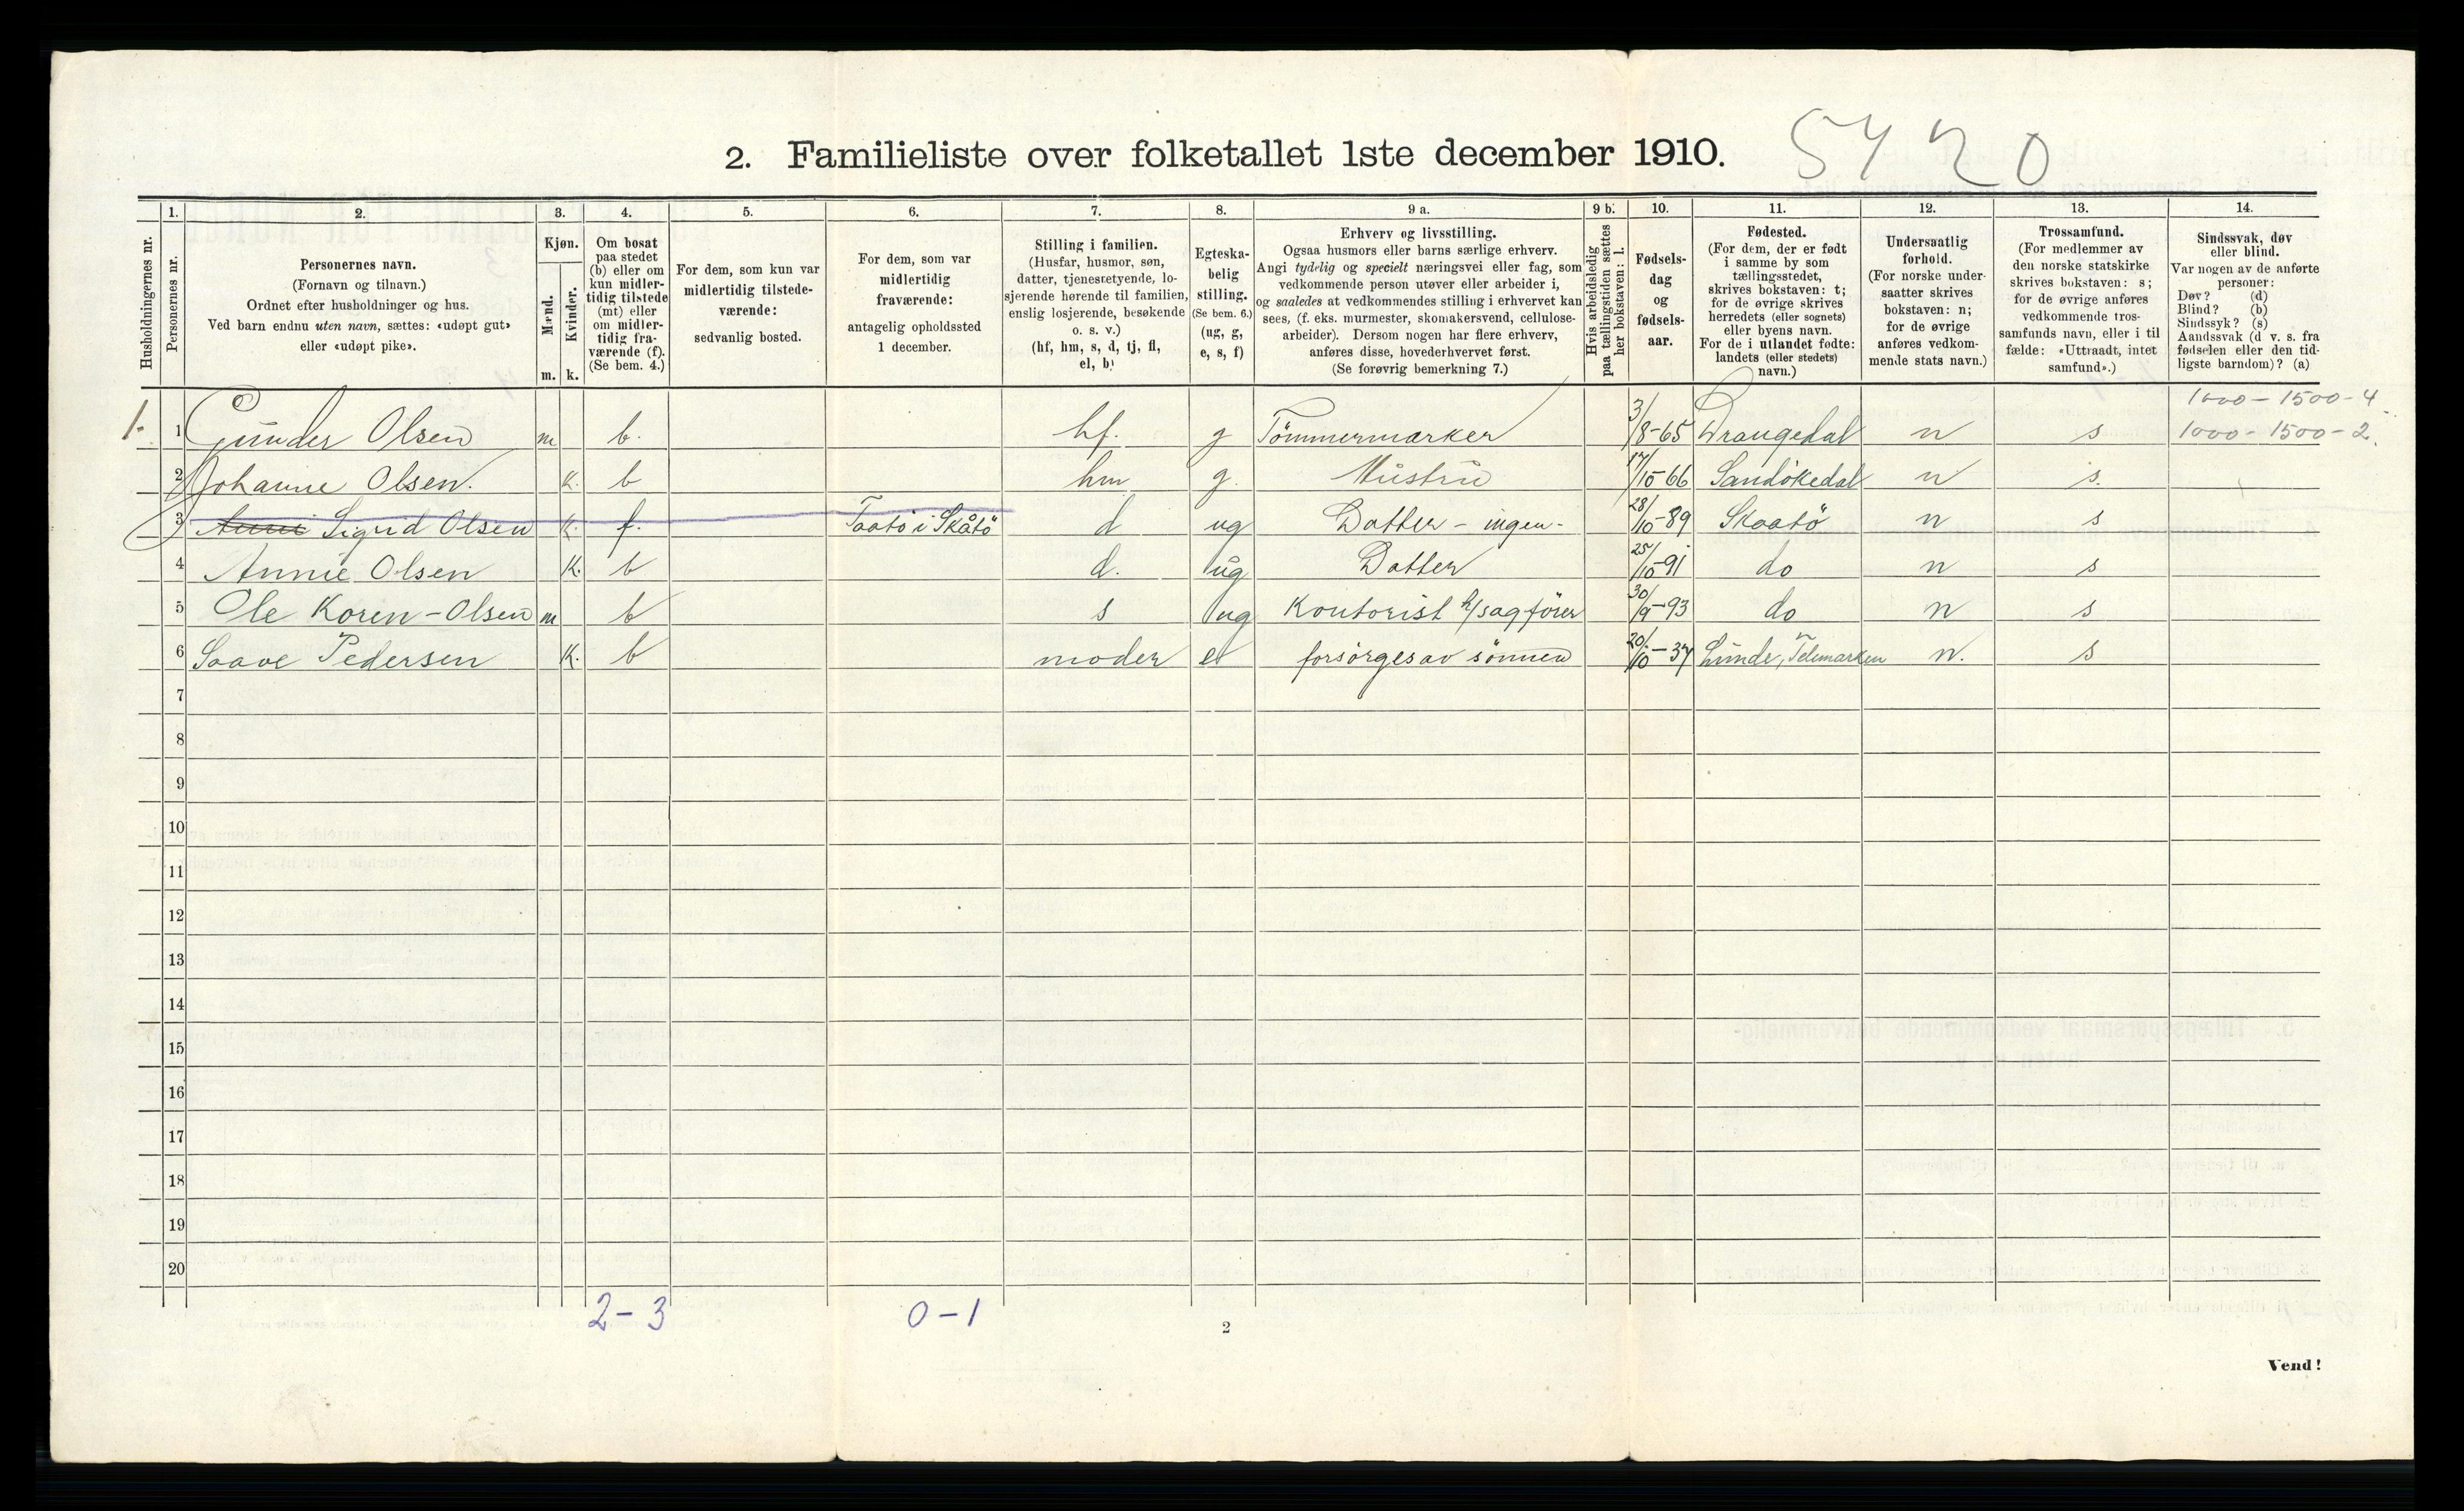 5420
2. Familieliste over folketallet 1ste december 1910.
Husholdningernes nr.
1.
Personernes nr.
2.
Personernes navn.
(Fornavn og tilnavn.)
Ordnet efter husholdninger og hus.
Ved barn endnu uten navn, sættes: «udøpt gut»
eller «udøpt pike».
3.
Kjøn.
Mænd.
Kvinder.
m. k.
4.
Om bosat
paa stedet
(b) eller om
kun midler-
tidig tilstede
(mt) eller
om midler-
tidig fra-
værende (f).
(Se bem. 4.)
5.
For dem, som kun var
midlertidig tilstede-
værende:
sedvanlig bosted.
6.
For dem, som var
midlertidig
fraværende:
antagelig opholdssted
1 december.
7.
Stilling i familien.
(Husfar, husmor, søn,
datter, tjenestetyende, lo-
sjerende hørende til familien,
enslig losjerende, besøkende
o. s. v.)
(hf, hm, s, d, tj, fl,
el, b)
8.
Egteska-
belig
stilling.
(Se bem. 6.)
(ug, g,
e, s, f)
9 a.
Erhverv og livsstilling.
Ogsaa husmors eller barns særlige erhverv.
Angi tydelig og specielt næringsvei eller fag, som
vedkommende person utøver eller arbeider i,
og saaledes at vedkommendes stilling i erhvervet kan
sees, (f. eks. murmester, skomakersvend, cellulose-
arbeider). Dersom nogen har flere erhverv,
anføres disse, hovederhvervet først.
(Se forøvrig bemerkning 7.)
9 b.
Hvis arbeidsledig
paa tællingstiden sættes
her bokstaven: l.
10.
Fødsels-
dag
og
fødsels-
aar.
11.
Fødested.
(For dem, der er født
i samme by som
tællingsstedet,
skrives bokstaven: t;
for de øvrige skrives
herredets (eller sognets)
eller byens navn.
For de i utlandet fødte:
landets (eller stedets)
navn.)
12.
Undersaatlig
forhold.
(For norske under-
saatter skrives
bokstaven: n;
for de øvrige
anføres vedkom-
mende stats navn.)
13.
Trossamfund.
(For medlemmer av
den norske statskirke
skrives bokstaven: s;
for de øvrige anføres
vedkommende tros-
samfunds navn, eller i til
fælde: «Uttraadt, intet
samfund».)
14.
Sindssvak, døv
eller blind.
Var nogen av de anførte
personer:
Døv? (d)
Blind? (b)
Sindssyk? (s)
Aandssvak (d v. s. fra
fødselen eller den tid-
ligste barndom)? (a)
1000 - 1500 - 4
1. 1 Gunder Olsen m b. hf. g Tömmermærker 3/8-65 Drangedal n s 1000 - 1500 - 2.
2 Johanne Olsen. K. b hm g. Hustru 17/10 66 Sandökedal n s.
3 Anni Sigrid Olsen K. f. Taatö i Skåtö d ug Datter - ingen - 28/10-89 Skaatö n s
4 Annie Olsen K. b d. ug Datter 25/10-91 do n s
5 Ole Koren-Olsen m b s ug Kontorist h/sagförer 30/9-93 do n s
6 Saave Pedersen K. b moder e forsörges av sönnen 20/10-37 Lunde, Telemarken n. s
7
8
9
10
11
12
13
14
15
16
17
18
19
20
2 - 3 0 - 1
2
Vend!